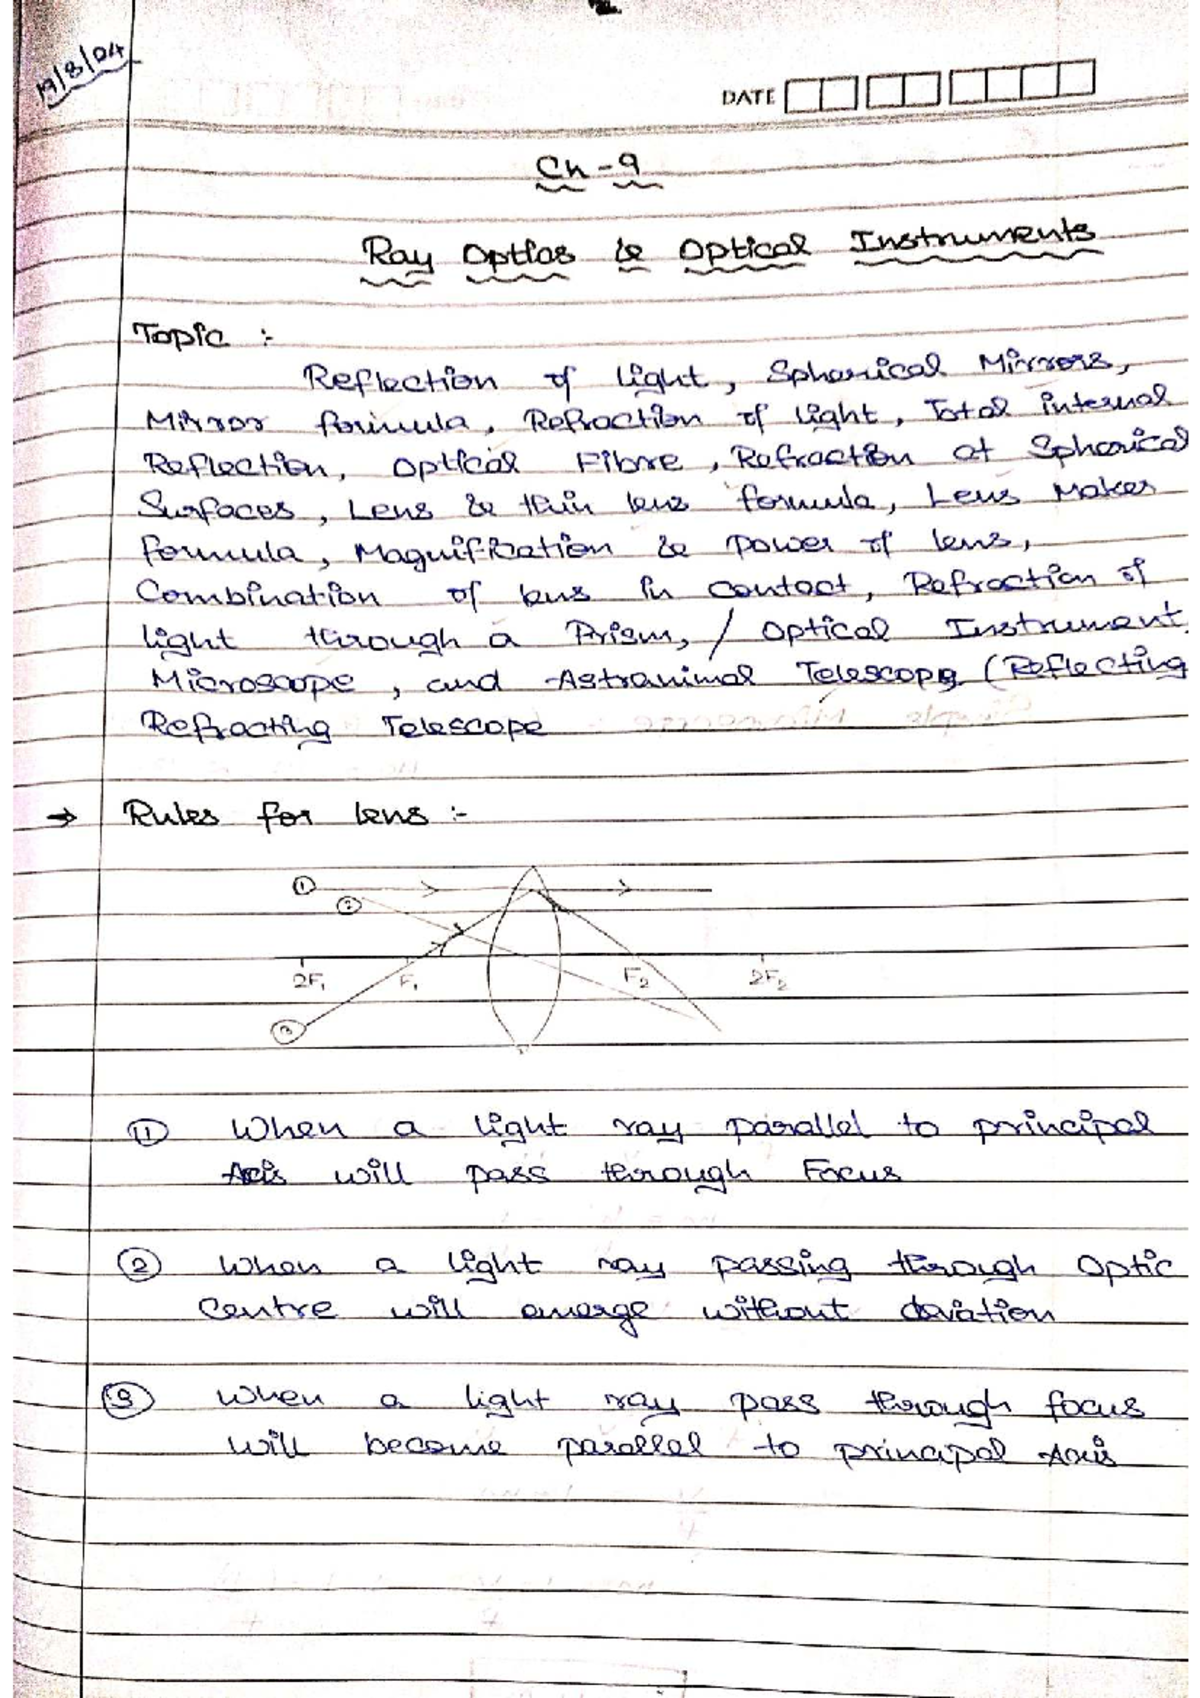 19/8/04
DATE
Ch - 9
Ray Optics & Optical Instruments
Topic :-
Reflection of light, Spherical Mirrors,
Mirror formula, Refraction of light, Total internal
Reflection, Optical Fibre, Refraction at Spherical
Surfaces, Lens & thin lens formula, Lens Maker
formula, Magnification & power of lens,
Combination of lens in contact, Refraction of
light through a Prism, / Optical Instrument,
Microscope, and Astranimal Telescope (Reflecting
Refracting Telescope
→ Rules for lens :-
①
②
2F₁ F₁ F₂ 2F₂
③
① When a light ray parallel to principal
Axis will pass through Focus
② When a light ray passing through Optic
Centre will emerge without deviation
③ When a light ray pass through focus
will become parallel to principal Axis